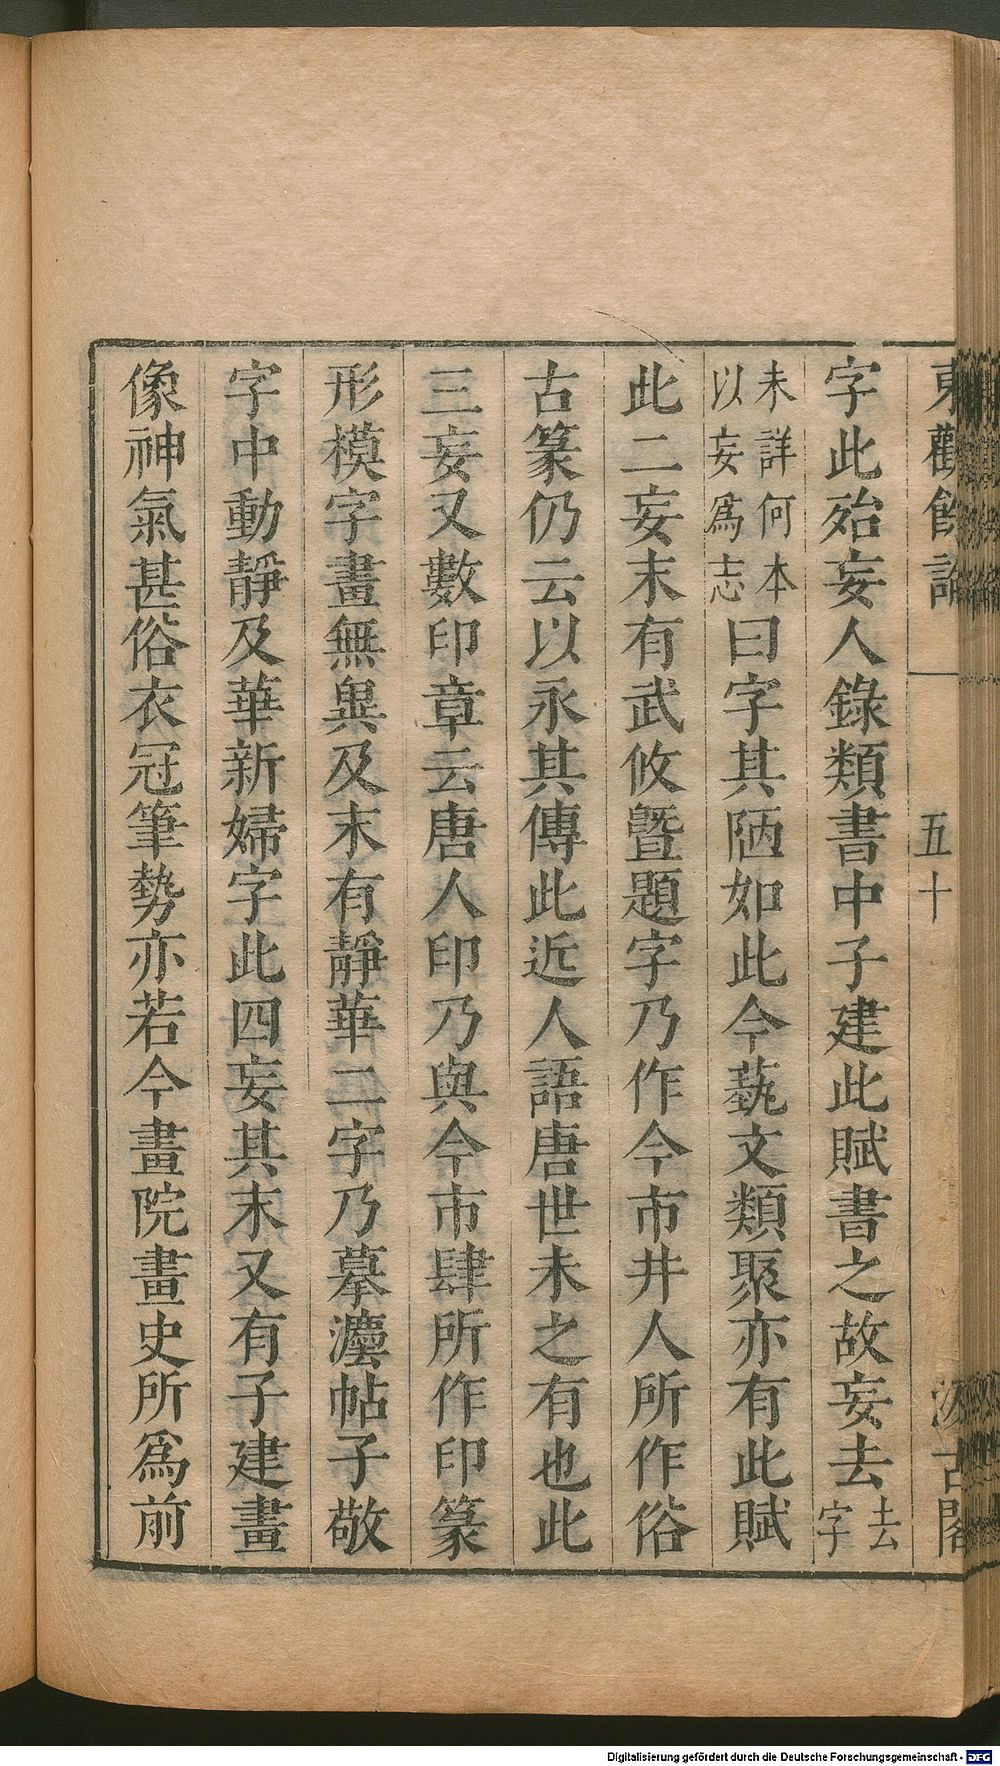 東觀餘論
五十
汲古閣
字此殆妄人錄類書中子建此賦書之故妄去去字
未詳何本以妄爲志曰字其陋如此今蓺文類聚亦有此賦
此二妄末有武攸暨題字乃作今市井人所作俗
古篆仍云以永其傳此近人語唐世未之有也此
三妄又數印章云唐人印乃與今市肆所作印篆
形模字畫無異及末有靜華二字乃摹灋帖子敬
字中動靜及華新婦字此四妄其末又有子建畫
像神氣甚俗衣冠筆勢亦若今畫院畫史所爲前
Digitalisierung gefördert durch die Deutsche Forschungsgemeinschaft - DFG